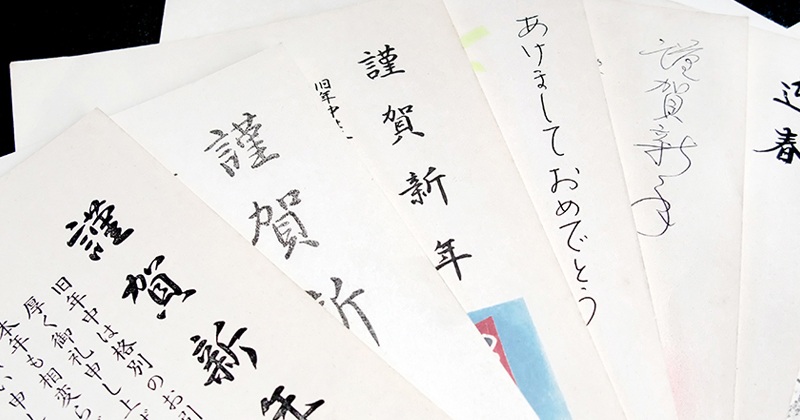 迎春
謹賀新年
あけましておめでとう
謹賀新年
旧年中
謹賀新
謹賀新年
旧年中は格別のお引
厚く御礼申し上
本年も相変ら
い申し